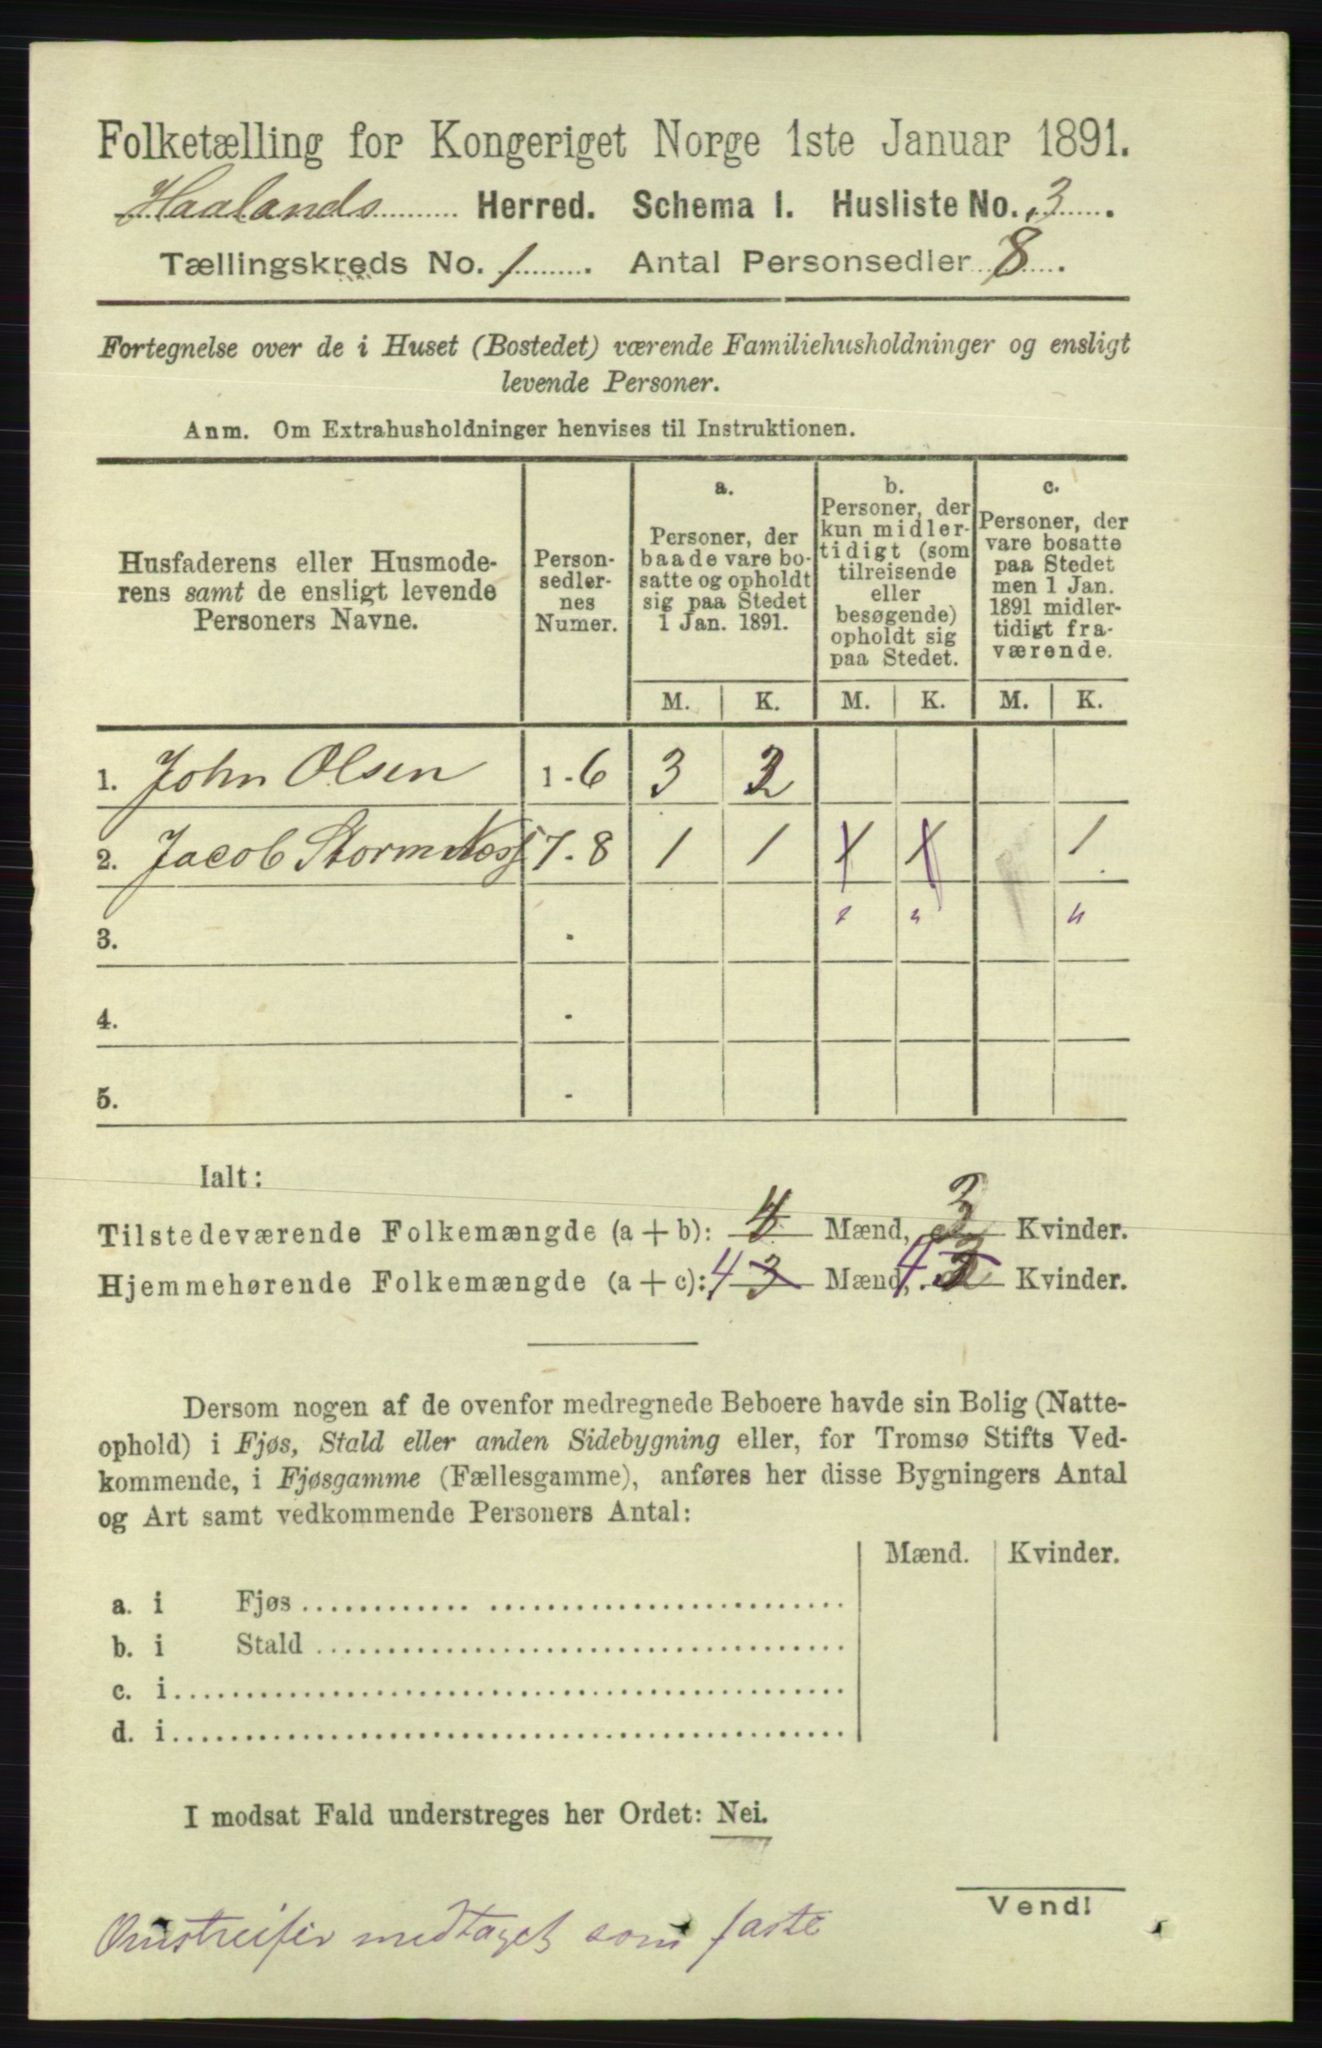 Folketælling for Kongeriget Norge 1ste Januar 1891.
Haalands Herred. Schema I. Husliste No. 3.
Tællingskreds No. 1. Antal Personsedler 8.
Fortegnelse over de i Huset (Bostedet) værende Familiehusholdninger og ensligt
levende Personer.
Anm. Om Extrahusholdninger henvises til Instruktionen.
Husfaderens eller Husmode-
rens samt de ensligt levende
Personers Navne.
Person-
sedler-
nes
Numer.
a.
Personer, der
baade vare bo-
satte og opholdt
sig paa Stedet
1 Jan. 1891.
b.
Personer, der
kun midler-
tidigt (som
tilreisende
eller
besøgende)
opholdt sig
paa Stedet.
c.
Personer, der
vare bosatte
paa Stedet
men 1 Jan.
1891 midler-
tidigt fra-
værende.
M. K. M. K. M. K.
1. John Olsen 1-6 3
2. Jacob Storm 7-8 1 1 1 1 1
3. -
4. -
5. -
Ialt:
Tilstedeværende Folkemængde (a + b): 4 Mænd, 3 Kvinder.
Hjemmehørende Folkemængde (a + c): 4 3 Mænd, 4 3 Kvinder.
Dersom nogen af de ovenfor medregnede Beboere havde sin Bolig (Natte-
ophold) i Fjøs, Stald eller anden Sidebygning eller, for Tromsø Stifts Ved-
kommende, i Fjøsgamme (Fællesgamme), anføres her disse Bygningers Antal
og Art samt vedkommende Personers Antal:
Mænd. Kvinder.
a. i Fjøs
b. i Stald
c. i
d. i
I modsat Fald understreges her Ordet: Nei.
Vend!
Omstreifer medtaget som faste